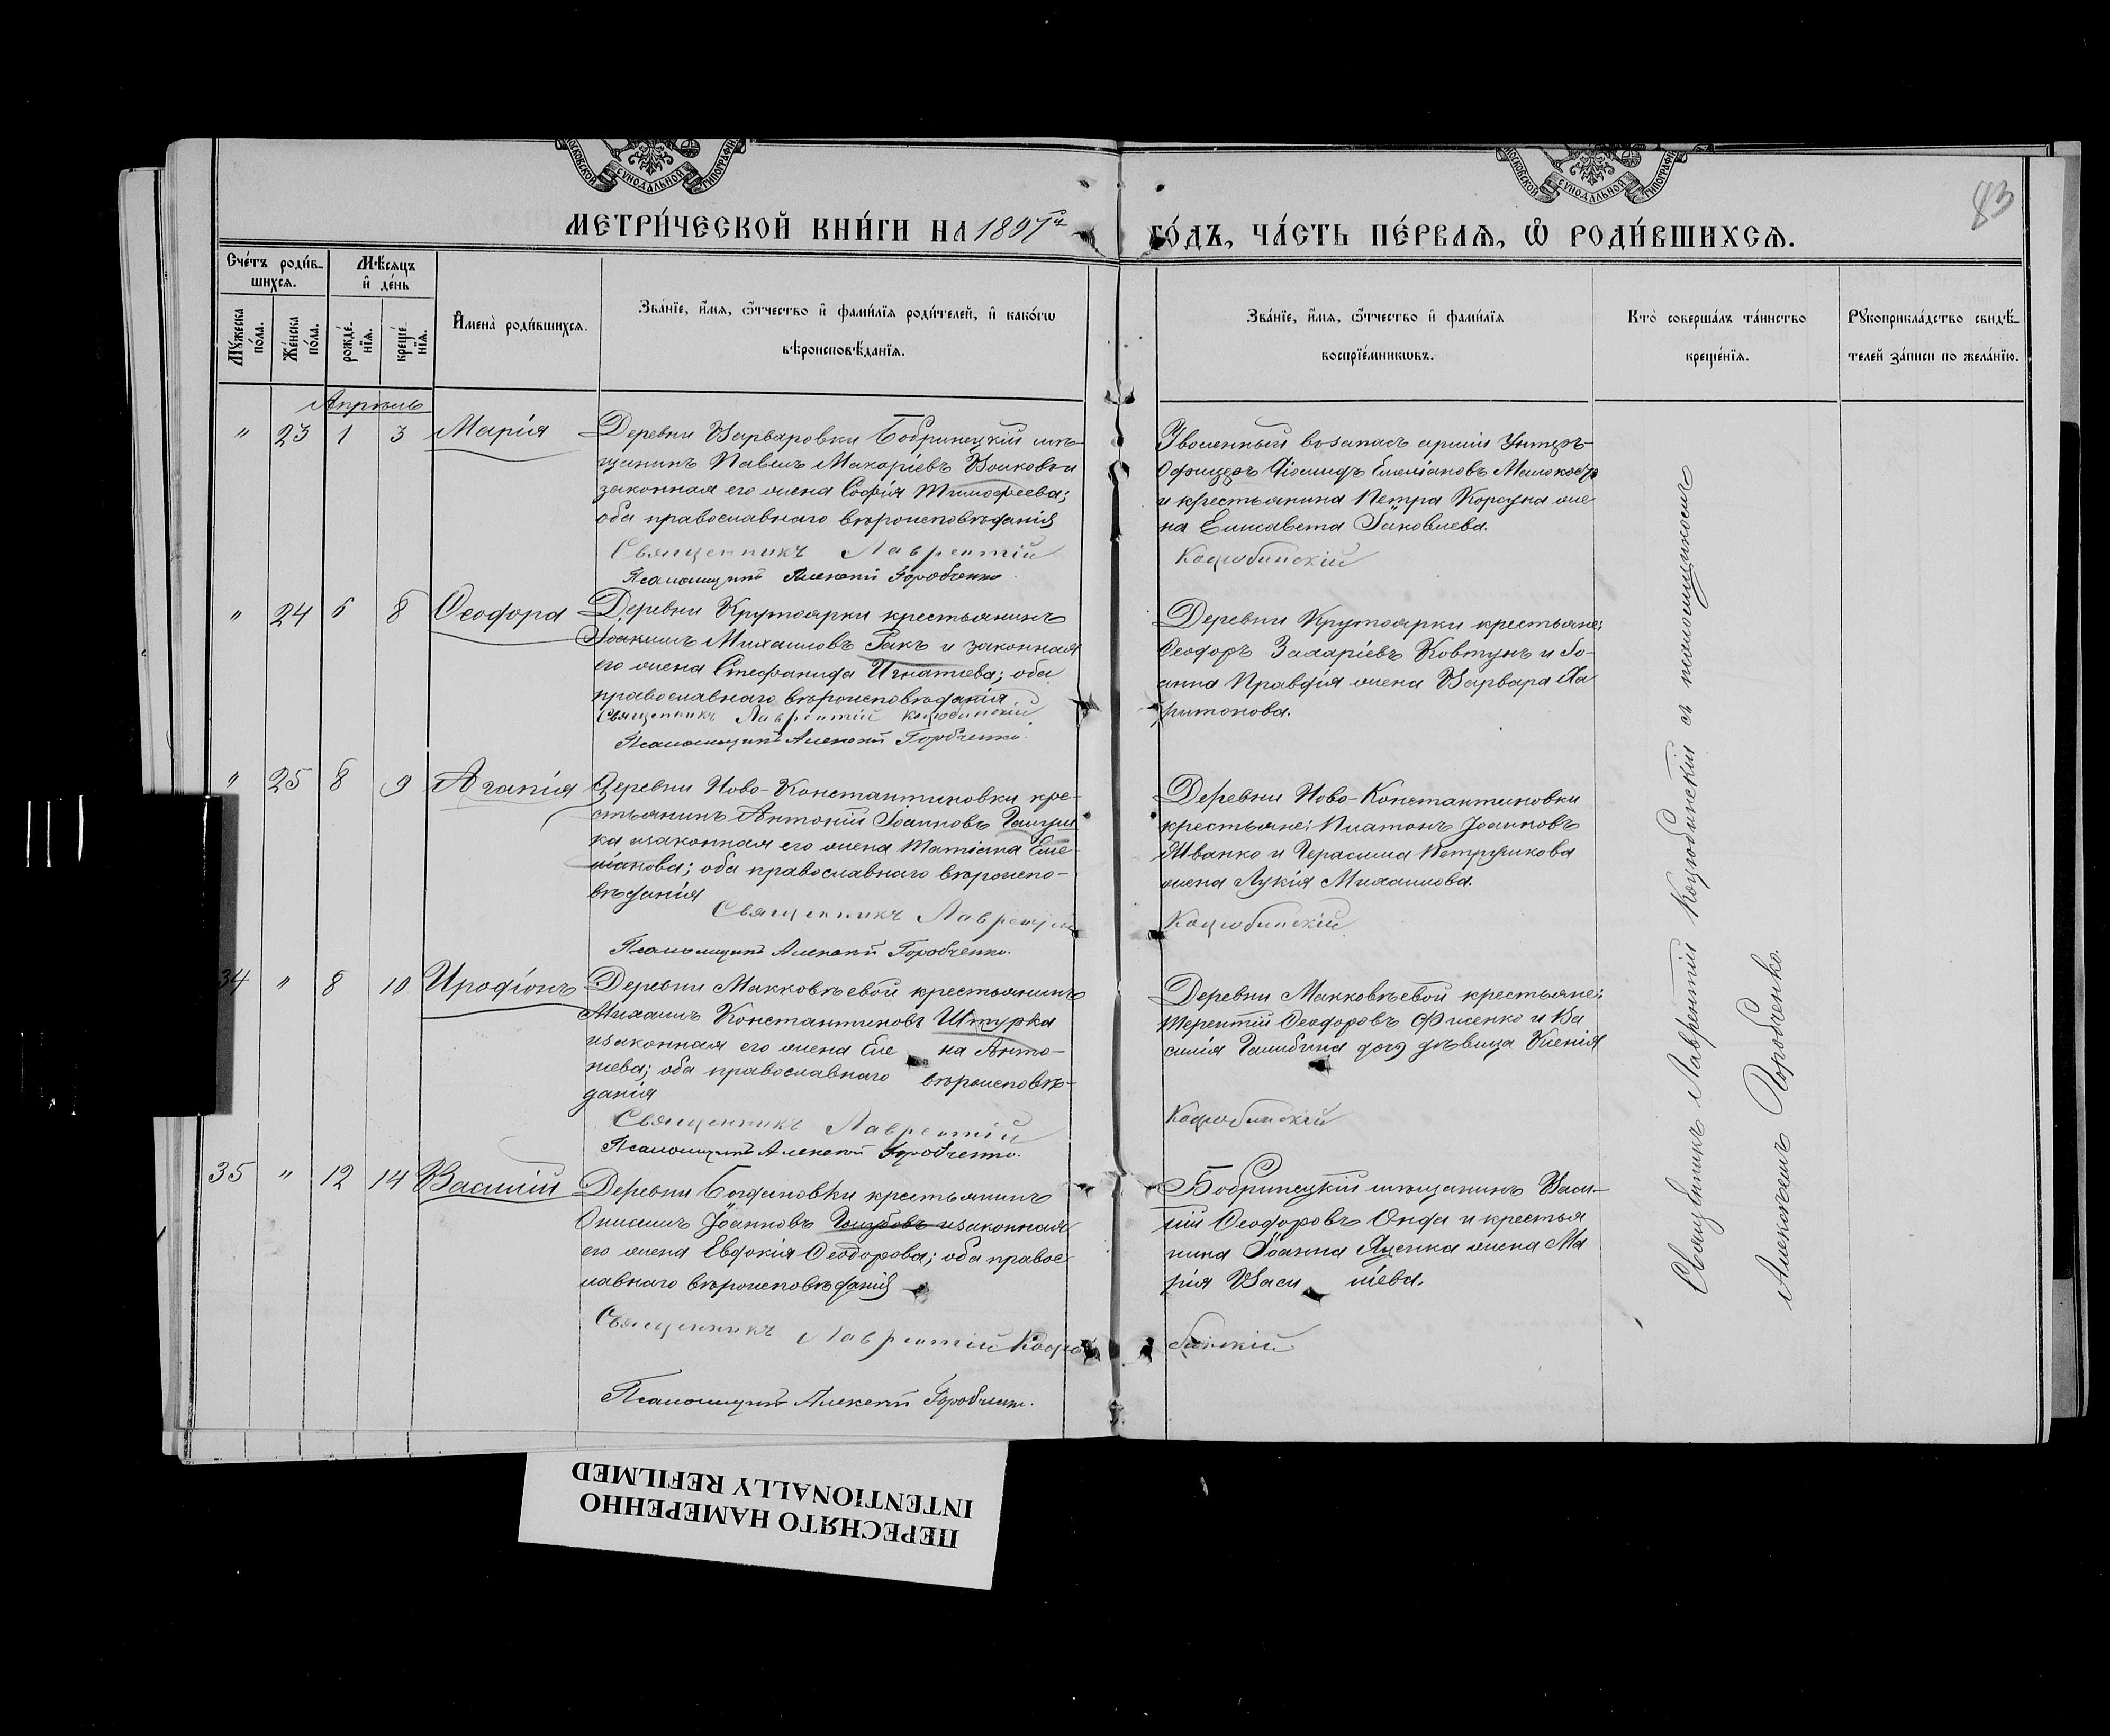 МОСКОВСКОЙ СУНОДАЛЬНОЙ ТИПОГРАФІИ
МОСКОВСКОЙ СУНОДАЛЬНОЙ ТИПОГРАФІИ
83
МЕТРИ́ЧЕСКОЙ КНИ́ГИ НА 1897й ГО́ДЪ, ЧА́СТЬ ПЕ́РВАѦ, Ѽ РОДИ́ВШИХСѦ.
Сче́тъ роди́в-
шихсѧ.
Мѣ́сѧцъ
и҆ де́нь
Мꙋ́жеска по́ла.
Же́нска по́ла.
рожде́-
нїѧ.
креще́-
нїѧ.
И҆мена̀ роди́вшихсѧ.
Зва́нїе, и҆́мѧ, ѻ҆́тчество и҆ фами́лїѧ роди́телей, и҆ како́гѡ
вѣроисповѣ́данїѧ.
Зва́нїе, и҆́мѧ, ѻ҆́тчество и҆ фами́лїѧ
воспрїе́мникѡвъ.
Кто̀ соверша́лъ та́инство
креще́нїѧ.
Рꙋкоприкла́дство свидѣ́-
телей за́писи по жела́нїю.
Апрѣль
" 23 1 3 Марія
Деревни Варваровки Бобринецкій мѣ-
щанинъ Павелъ Макаріевъ
законная его жена Софія Тимофеева;
оба православнаго вѣроисповѣданія
Священникъ Лаврентій
Псаломщикъ Алексѣй Горобченко.
Уволенный въ запасъ арміи Унтеръ-
Офицеръ Емеліановъ
и крестьянина Петра Корсуна же
на Елисавета Іаковлева.
Коцюбинскій
" 24 6 8 Ѳеодора
Деревни Крутоярки крестьянинъ
Іоакимъ Михаиловъ Гакъ и законная
его жена Стефанида Игнатіева; оба
православнаго вѣроисповѣданія
Священникъ Лаврентій Коцюбинскій
Псаломщикъ Алексѣй Горобченко.
Деревни Крутоярки крестьяне:
Ѳеодоръ Захаріевъ Ковтунъ и Іо-
анна жена Варвара Ха
ритонова.
" 25 8 9 Агапія
Деревни Ново-Константиновки кре-
стьянинъ Антоній Іоанновъ
ка и законная его жена Татіана Еме-
ліанова; оба православнаго вѣроиспо-
вѣданія
Священникъ Лаврентій
Псаломщикъ Алексѣй Горобченко.
Деревни Ново-Константиновки
крестьяне: Платонъ Іоанновъ
Иванко и Герасима Петрушкова
жена Лукія Михаилова.
Коцюбинскій
34 " 8 10 Иродіонъ
Деревни Макковѣевой крестьянинъ
Михаилъ Константиновъ Штурка
и законная его жена Еле на Анто-
ніева; оба православнаго вѣроисповѣ-
данія
Священникъ Лаврентій
Псаломщикъ Алексѣй Горобченко.
Деревни Макковѣевой крестьяне:
Терентій Ѳеодоровъ Фисенко и Ва
силія дочь дѣвица Ксенія
Коцюбинскій
35 " 12 14 Василій
Деревни Богдановки крестьянинъ
Онисимъ Іоанновъ и законная
его жена Евдокія Ѳеодорова; оба правос
лавнаго вѣроисповѣданія
Священникъ Лаврентій Коцю
Псаломщикъ Алексѣй Горобченко.
Бобринецкій мѣщанинъ Васи-
лій Ѳеодоровъ Онда и крестья
нина Іоанна Яценка жена Ма
рія Васи ліева.
бинскій
Священникъ Лаврентій Коцюбинскій съ псаломщикомъ
Алексѣемъ Горобченко
ПЕРЕСНЯТО НАМЕРЕННО
INTENTIONALLY REFILMED